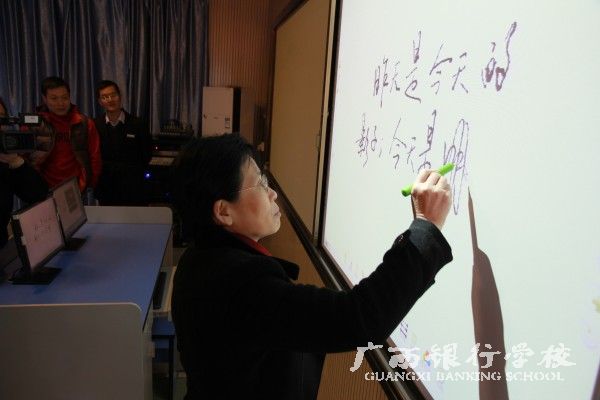 昨天是今天的
影子，今天是明
广西银行学校
GUANGXI BANKING SCHOOL